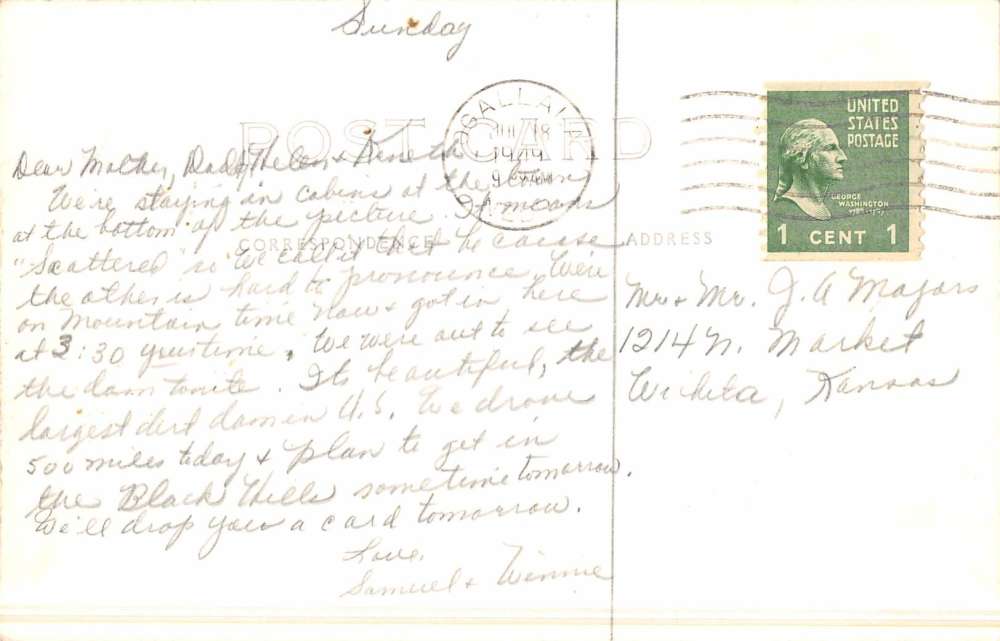 Sunday
POST CARD
OGALLALA
JUL 18
1949
9 AM
UNITED
STATES
POSTAGE
GEORGE
WASHINGTON
1 CENT 1
Dear Mother, Dad, Helen & Kenneth,
We're staying in cabins at the town
at the bottom of the picture. It means
"Scattered" so we call it that because
the other is hard to pronounce. We're
on Mountain time now & got in here
at 3:30 your time. We were out to see
the dam tonite. Its beautiful, the
largest dirt dam in U.S. We drove
500 miles today & plan to get in
the Black Hills sometime tomorrow.
We'll drop you a card tomorrow.
Love,
Samuel & Winnie
CORRESPONDENCE
ADDRESS
Mr. & Mr. J. A Majors
1214 N. Market
Wichita, Kansas